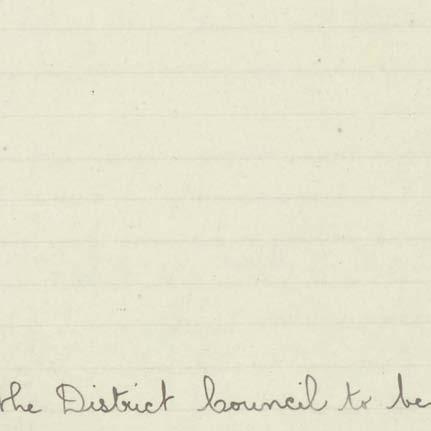 the District Council to be